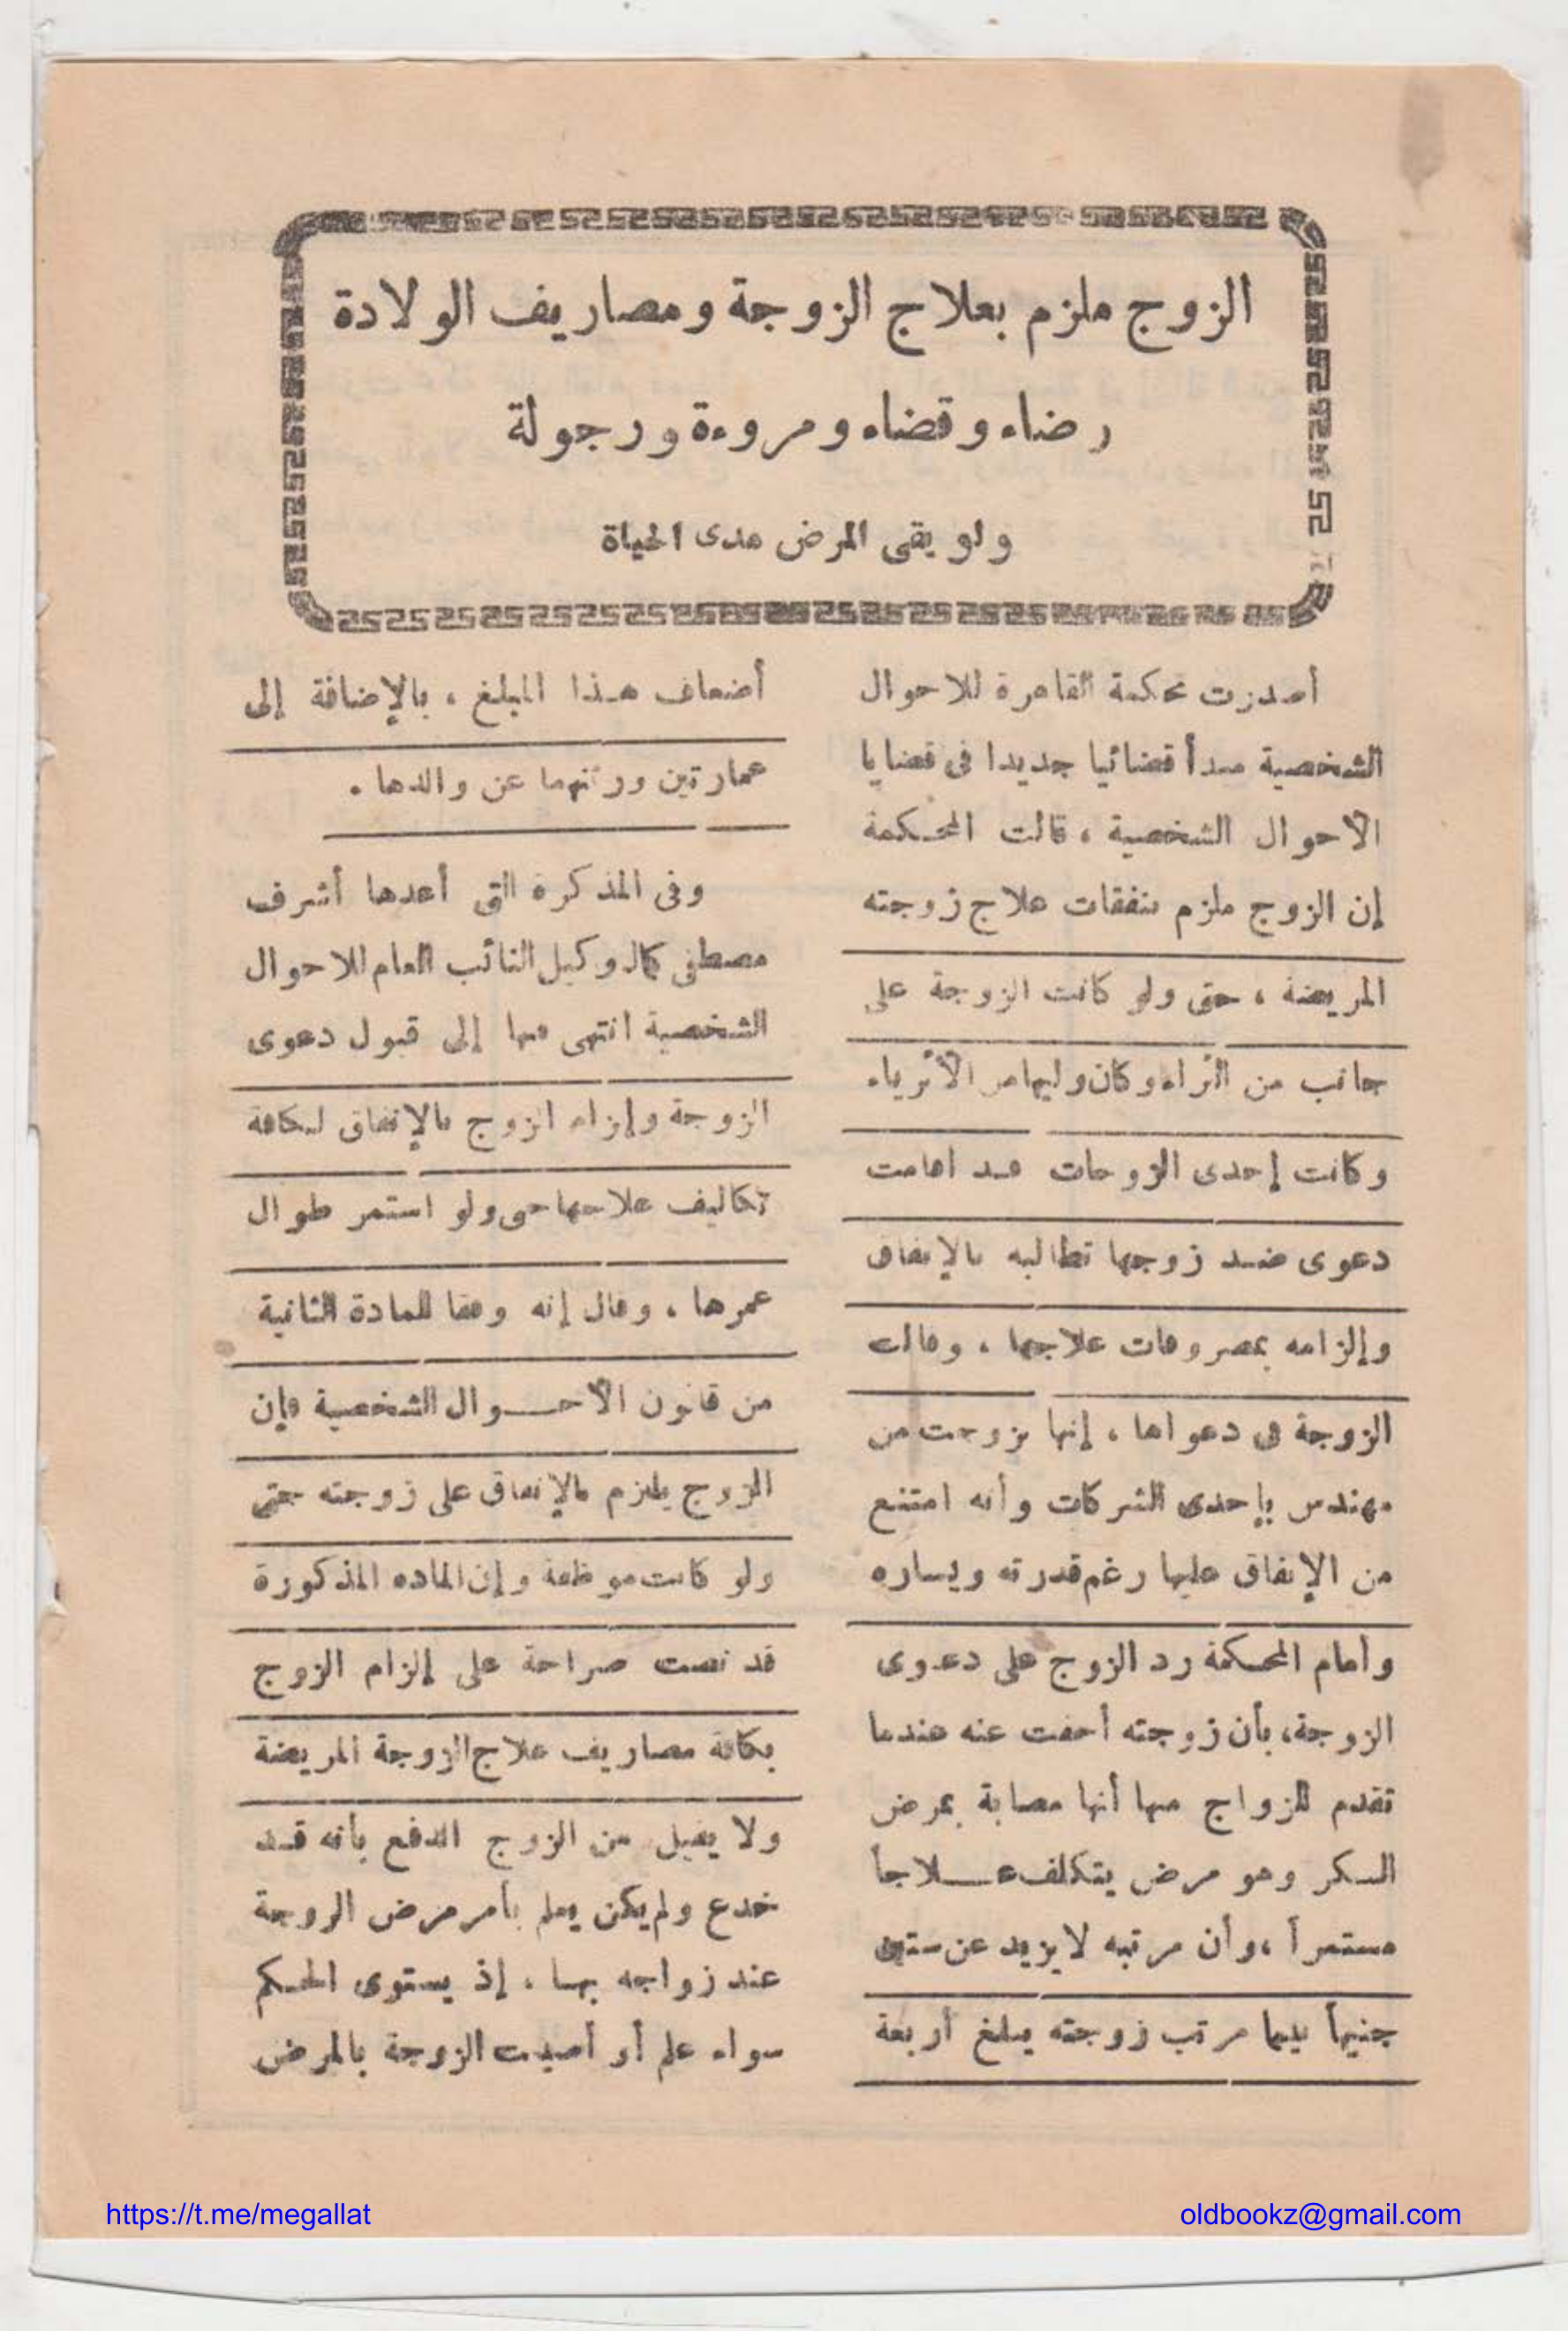 الزوج ملزم بعلاج الزوجة ومصاريف الولادة
رضاء وقضاء ومروءة ورجولة
ولو بقى المرض مدى الحياة
أصدرت محكمة القاهرة للاحوال
الشخصية مبدأ قضائيا جديدا فى قضايا
الأحوال الشخصية ، قالت المحكمة
إن الزوج ملزم بنفقات علاج زوجته
المريضة ، حتى ولو كانت الزوجة على
جانب من الثراء وكان وليها من الأثرياء
وكانت إحدى الزوجات قد أقامت
دعوى ضد زوجها تطالبه بالإنفاق
وإلزامه بمصروفات علاجها ، وقالت
الزوجة فى دعواها ، إنها تزوجت من
مهندس بإحدى الشركات وأنه امتنع
من الإنفاق عليها رغم قدرته ويساره
وأمام المحكمة رد الزوج على دعوى
الزوجة، بأن زوجته أخفت عنه عندما
تقدم للزواج منها أنها مصابة بمرض
السكر وهو مرض يتكلف علاجا
مستمرا ، وأن مرتبه لا يزيد عن ستين
جنيهاً بينما مرتب زوجته يبلغ أربعة
أضعاف هذا المبلغ ، بالإضافة إلى
عمارتين ورثتهما عن والدها .
وفى المذكرة التى أعدها أشرف
مصطفى كمال وكيل النائب العام للاحوال
الشخصية انتهى منها إلى قبول دعوى
الزوجة وإلزام الزوج بالإنفاق لكافة
تكاليف علاجها حتى ولو استمر طوال
عمرها ، وقال إنه وفقا للمادة الثانية
من قانون الأحوال الشخصية فإن
الزوج يلتزم بالإنفاق على زوجته حتى
ولو كانت موظفة وإن المادة المذكورة
قد نصت صراحة على إلزام الزوج
بكافة مصاريف علاج الزوجة المريضة
ولا يقبل من الزوج الدفع بأنه قد
خدع ولم يكن يعلم بأمر مرض الزوجة
عند زواجه بها ، إذ يستوى الحكم
سواء علم أو أصيبت الزوجة بالمرض
https://t.me/megallat
oldbookz@gmail.com